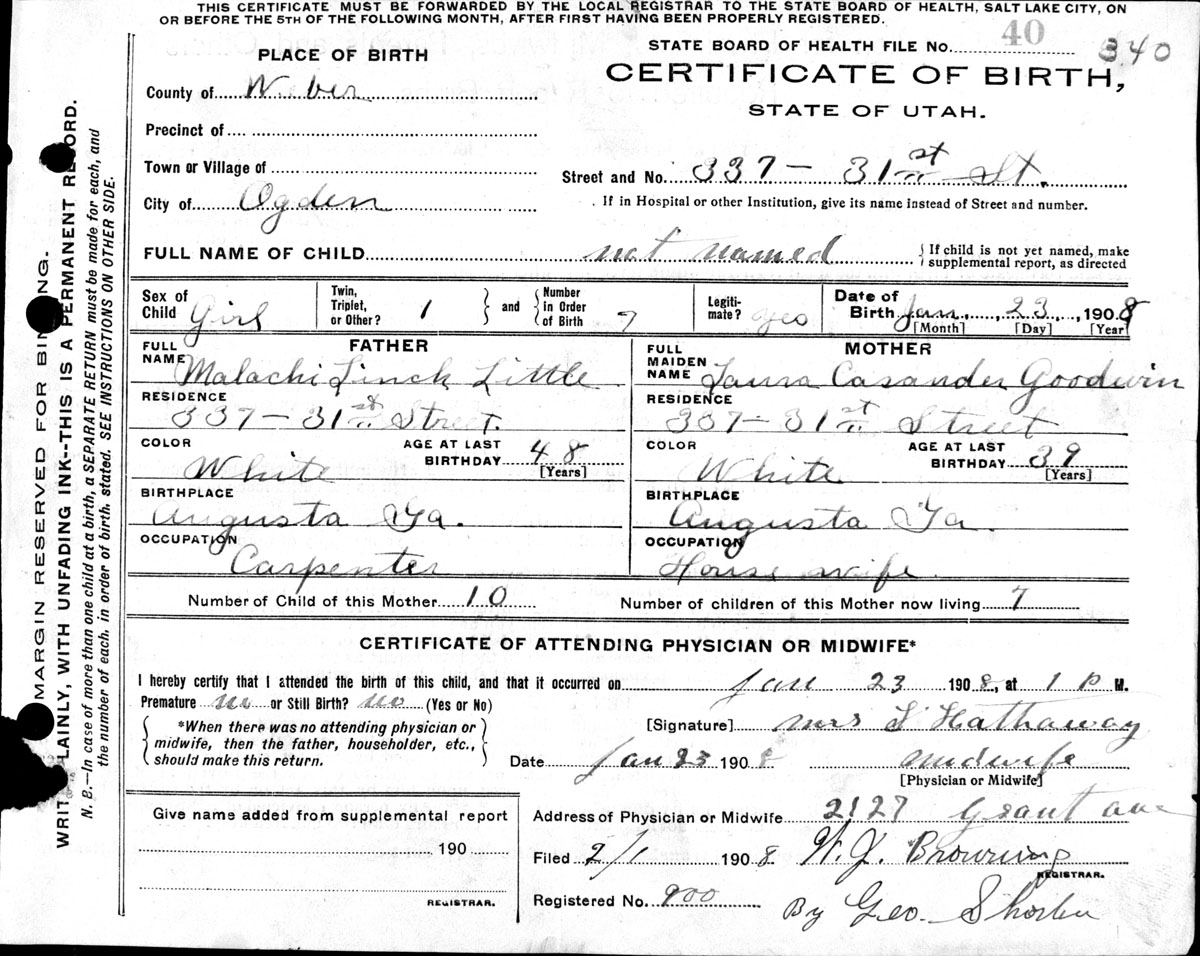 THIS CERTIFICATE MUST BE FORWARDED BY THE LOCAL REGISTRAR TO THE STATE BOARD OF HEALTH, SALT LAKE CITY, ON
OR BEFORE THE 5TH OF THE FOLLOWING MONTH, AFTER FIRST HAVING BEEN PROPERLY REGISTERED.
PLACE OF BIRTH
STATE BOARD OF HEALTH FILE No. 40 340
CERTIFICATE OF BIRTH,
STATE OF UTAH.
County of Weber
Precinct of
Town or Village of
City of Ogden
Street and No. 337 - 31st St.
If in Hospital or other Institution, give its name instead of Street and number.
FULL NAME OF CHILD not named
{If child is not yet named, make supplemental report, as directed
Sex of Child Girl
Twin, Triplet, or Other? 1 } and { Number in Order of Birth 7
Legitimate? Yes
Date of Birth Jan 23, 1908
[Month] [Day] [Year]
FATHER
FULL NAME Malachi Linck Little
RESIDENCE
337 - 31st Street.
COLOR White
AGE AT LAST BIRTHDAY 48 [Years]
BIRTHPLACE
Augusta Ga.
OCCUPATION
Carpenter
MOTHER
FULL MAIDEN NAME Laura Casander Goodwin
RESIDENCE
337 - 31st Street
COLOR White
AGE AT LAST BIRTHDAY 39 [Years]
BIRTHPLACE
Augusta Ga.
OCCUPATION
House wife.
Number of Child of this Mother 10 Number of children of this Mother now living 7
CERTIFICATE OF ATTENDING PHYSICIAN OR MIDWIFE*
I hereby certify that I attended the birth of this child, and that it occurred on Jan 23 1908, at 1 P M.
Premature no or Still Birth? no (Yes or No)
{*When there was no attending physician or
midwife, then the father, householder, etc.,
should make this return.}
[Signature] Mrs Hathaway
Date Jan 23 1908 Midwife
[Physician or Midwife]
Give name added from supplemental report
190
REGISTRAR.
Address of Physician or Midwife 2127 Grant ave
Filed 2/1 1908 W. J. Browning
REGISTRAR.
Registered No. 900 By Geo. Shorten
MARGIN RESERVED FOR BINDING.
WRITE PLAINLY, WITH UNFADING INK--THIS IS A PERMANENT RECORD.
N. B.—In case of more than one child at a birth, a SEPARATE RETURN must be made for each, and
the number of each, in order of birth, stated. SEE INSTRUCTIONS ON OTHER SIDE.